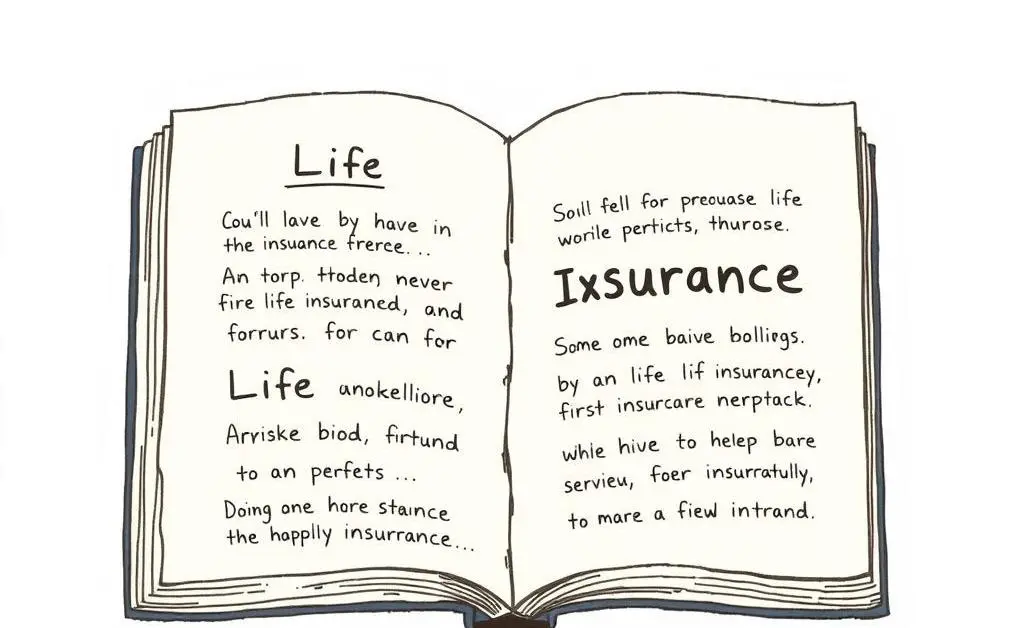 Life
Cou'll lave by have in
the insuance frerce...
An torp. ttoden never
fire life insuraned, and
forrurs. for can for
Life anokelliore,
Arviske biod, firtund
to an perfets ...
Doing one hore staince
the happlly insurrance...
Soill fell for preouase life
worile perticts, thurose.
Ixsurance
Some ome baive bolliegs.
by an life lif insurancey,
first insurcare nerptack.
while hive to helep bare
servieu, foer insurratully,
to mare a fiew intrand.